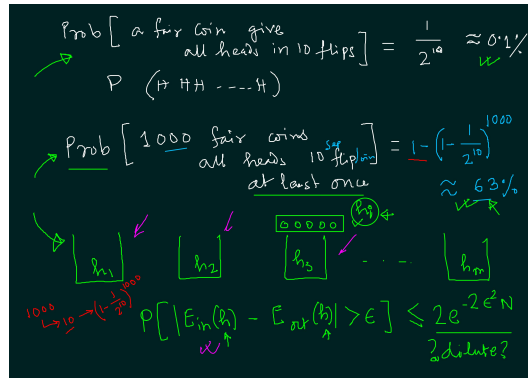 Prob [ a fair coin give
all heads in 10 flips ] = 1/2^10 ≈ 0.1%
P (H HH ---- H)
Prob [ 1000 fair coins
all heads 10 flip ] = 1-(1-1/2^10)^1000
at least once ≈ 63%
00000 hj
h1 h2 h3 . . . . hm
1000 → 10 → (1-1/2^10)^1000
P[|Ein(h) - Eout(h)| > ε] ≤ 2e^-2ε²N
? dilute?